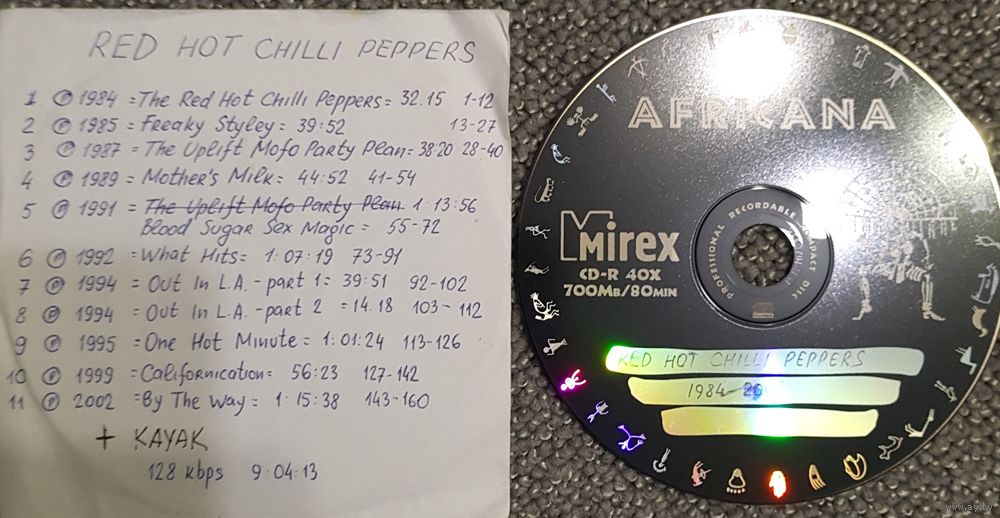 RED HOT CHILLI PEPPERS
1 ℗ 1984 = The Red Hot Chilli Peppers = 32.15 1-12
2 ℗ 1985 = Freaky Styley = 39:52 13-27
3 ℗ 1987 = The Uplift Mofo Party Plan = 38:20 28-40
4 ℗ 1989 = Mother's Milk = 44:52 41-54
5 ℗ 1991 = The Uplift Mofo Party Plan 1:13:56
Blood Sugar Sex Magic = 55-72
6 ℗ 1992 = What Hits = 1:07:19 73-91
7 ℗ 1994 = Out In L.A. - part 1 = 39:51 92-102
8 ℗ 1994 = Out In L.A. - part 2 = 14.18 103-112
9 ℗ 1995 = One Hot Minute = 1:01:24 113-126
10 ℗ 1999 = Californication = 56:23 127-142
11 ℗ 2002 = By The Way = 1:15:38 143-160
+ KAYAK
128 kbps 9:04:13
AFRICANA
Mirex
CD-R 40X
700MB/80MIN
PROFESSIONAL RECORDABLE COMPACT DISC
RED HOT CHILLI PEPPERS
1984-20
www.ay.by